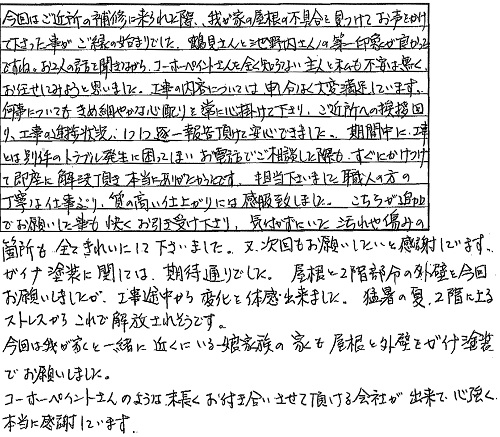 今回はご近所の補修に来られた際、我が家の屋根の不具合を見つけてお声をかけ
て下さった事がご縁の始まりでした。鶴見さんと池野内さんの第一印象が良かった
ですね。お2人の話を聞きながら、コーホーペイントさんを全く知らない主人と私も不安は無く、
お任せしてみようと思いました。工事の内容については申し分なく大変満足しています。
何事についてもきめ細やかな心配りを常に心掛けて下さり、ご近所への挨拶回
り、工事の進捗状況、1つ1つ逐一報告頂けて安心できました。期間中に、工事
とは別件のトラブル発生に困ってしまいお電話でご相談した際も、すぐにかけつけ
て即座に解決頂き本当にありがたかったです。担当下さいました職人の方の
丁寧な仕事ぶり、質の高い仕上がりには感服致しました。こちらが追加
でお願いした事も快くお引き受け下さり、気付かずにいた汚れや傷みの
箇所も全てきれいにして下さいました。又、次回もお願いしたいと感謝しています。
ガイナ塗装に関しては、期待通りでした。屋根と2階部分の外壁を今回
お願いしましたが、工事途中から変化を体感出来ました。猛暑の夏、2階による
ストレスからこれで解放されそうです。
今回は我が家と一緒に近くにいる娘家族の家も屋根と外壁をガイナ塗装
でお願いしました。
コーホーペイントさんのような末長くお付き合いさせて頂ける会社が出来て心強く、
本当に感謝しています。